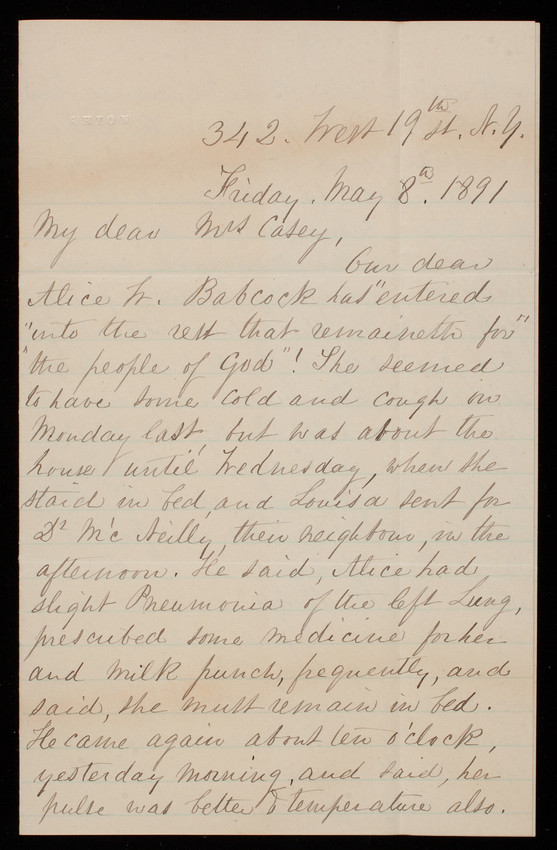 342. West 19th St. N.Y.
Friday, May 8th. 1891
My dear Mrs Casey,
Our dear
Alice W. Babcock has "entered
"into the rest that remaineth for"
"the people of God"! She seemed
to have some cold and cough on
Monday last, but was about the
house until Wednesday, when she
staid in bed, and Louisa sent for
Dr McNeilly, their neighbour, in the
afternoon. He said, Alice had
slight Pneumonia of the left Lung,
prescribed some medicine for her
and milk punch, frequently, and
said, she must remain in bed.
He came again about ten o'clock,
yesterday morning, and said, her
pulse was better & temperature also.